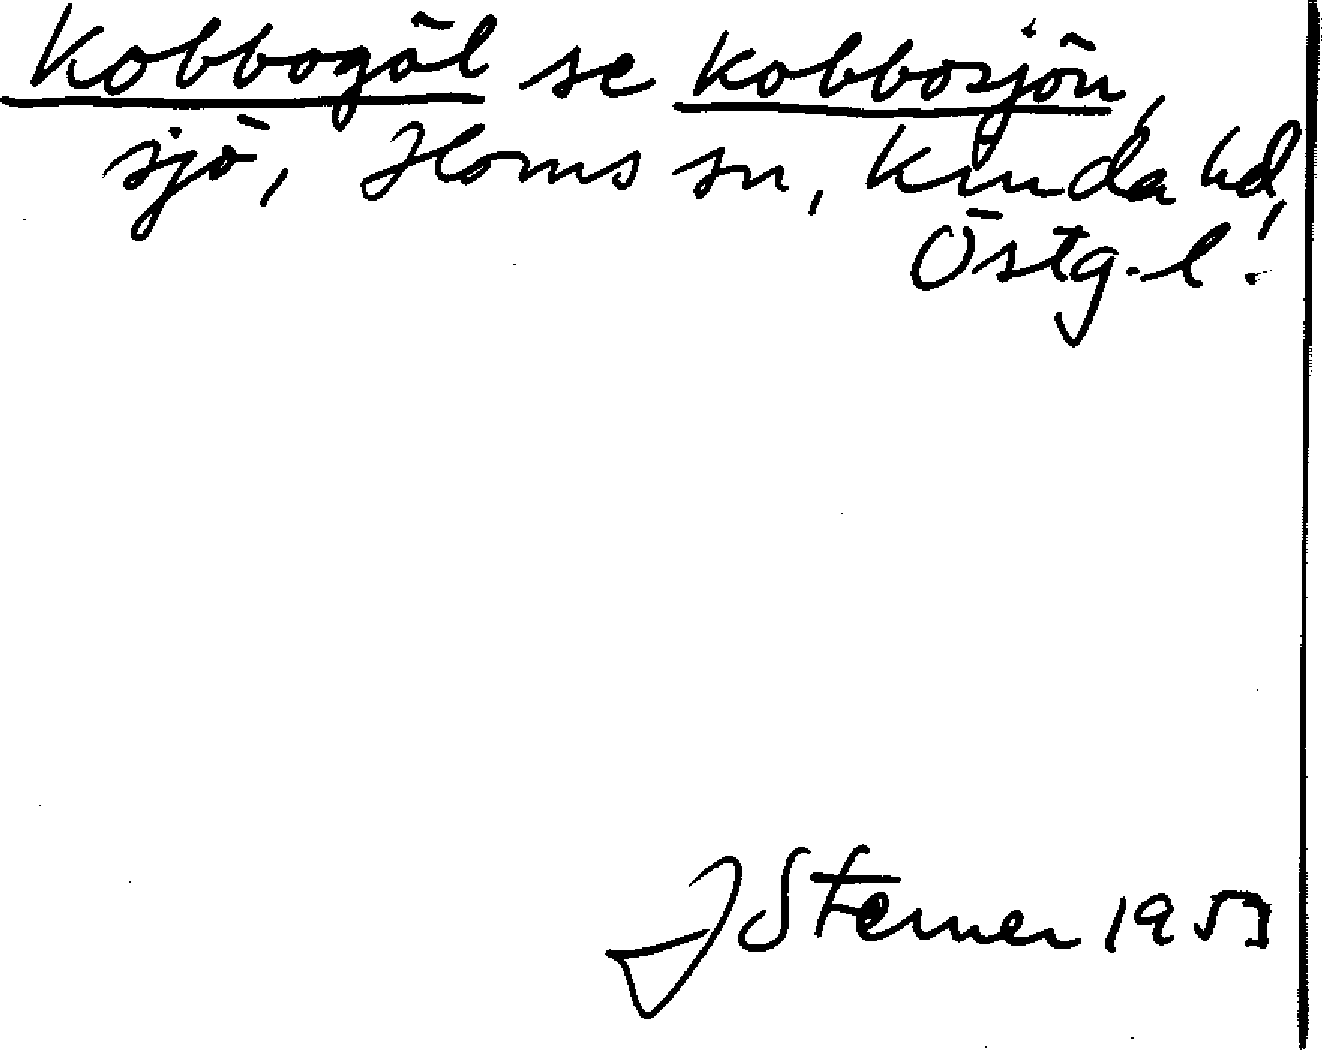 Kobbogöl se Kobbosjön,
sjö, Horns sn, Kinda hd,
Östg. l.
J Sterner 1953